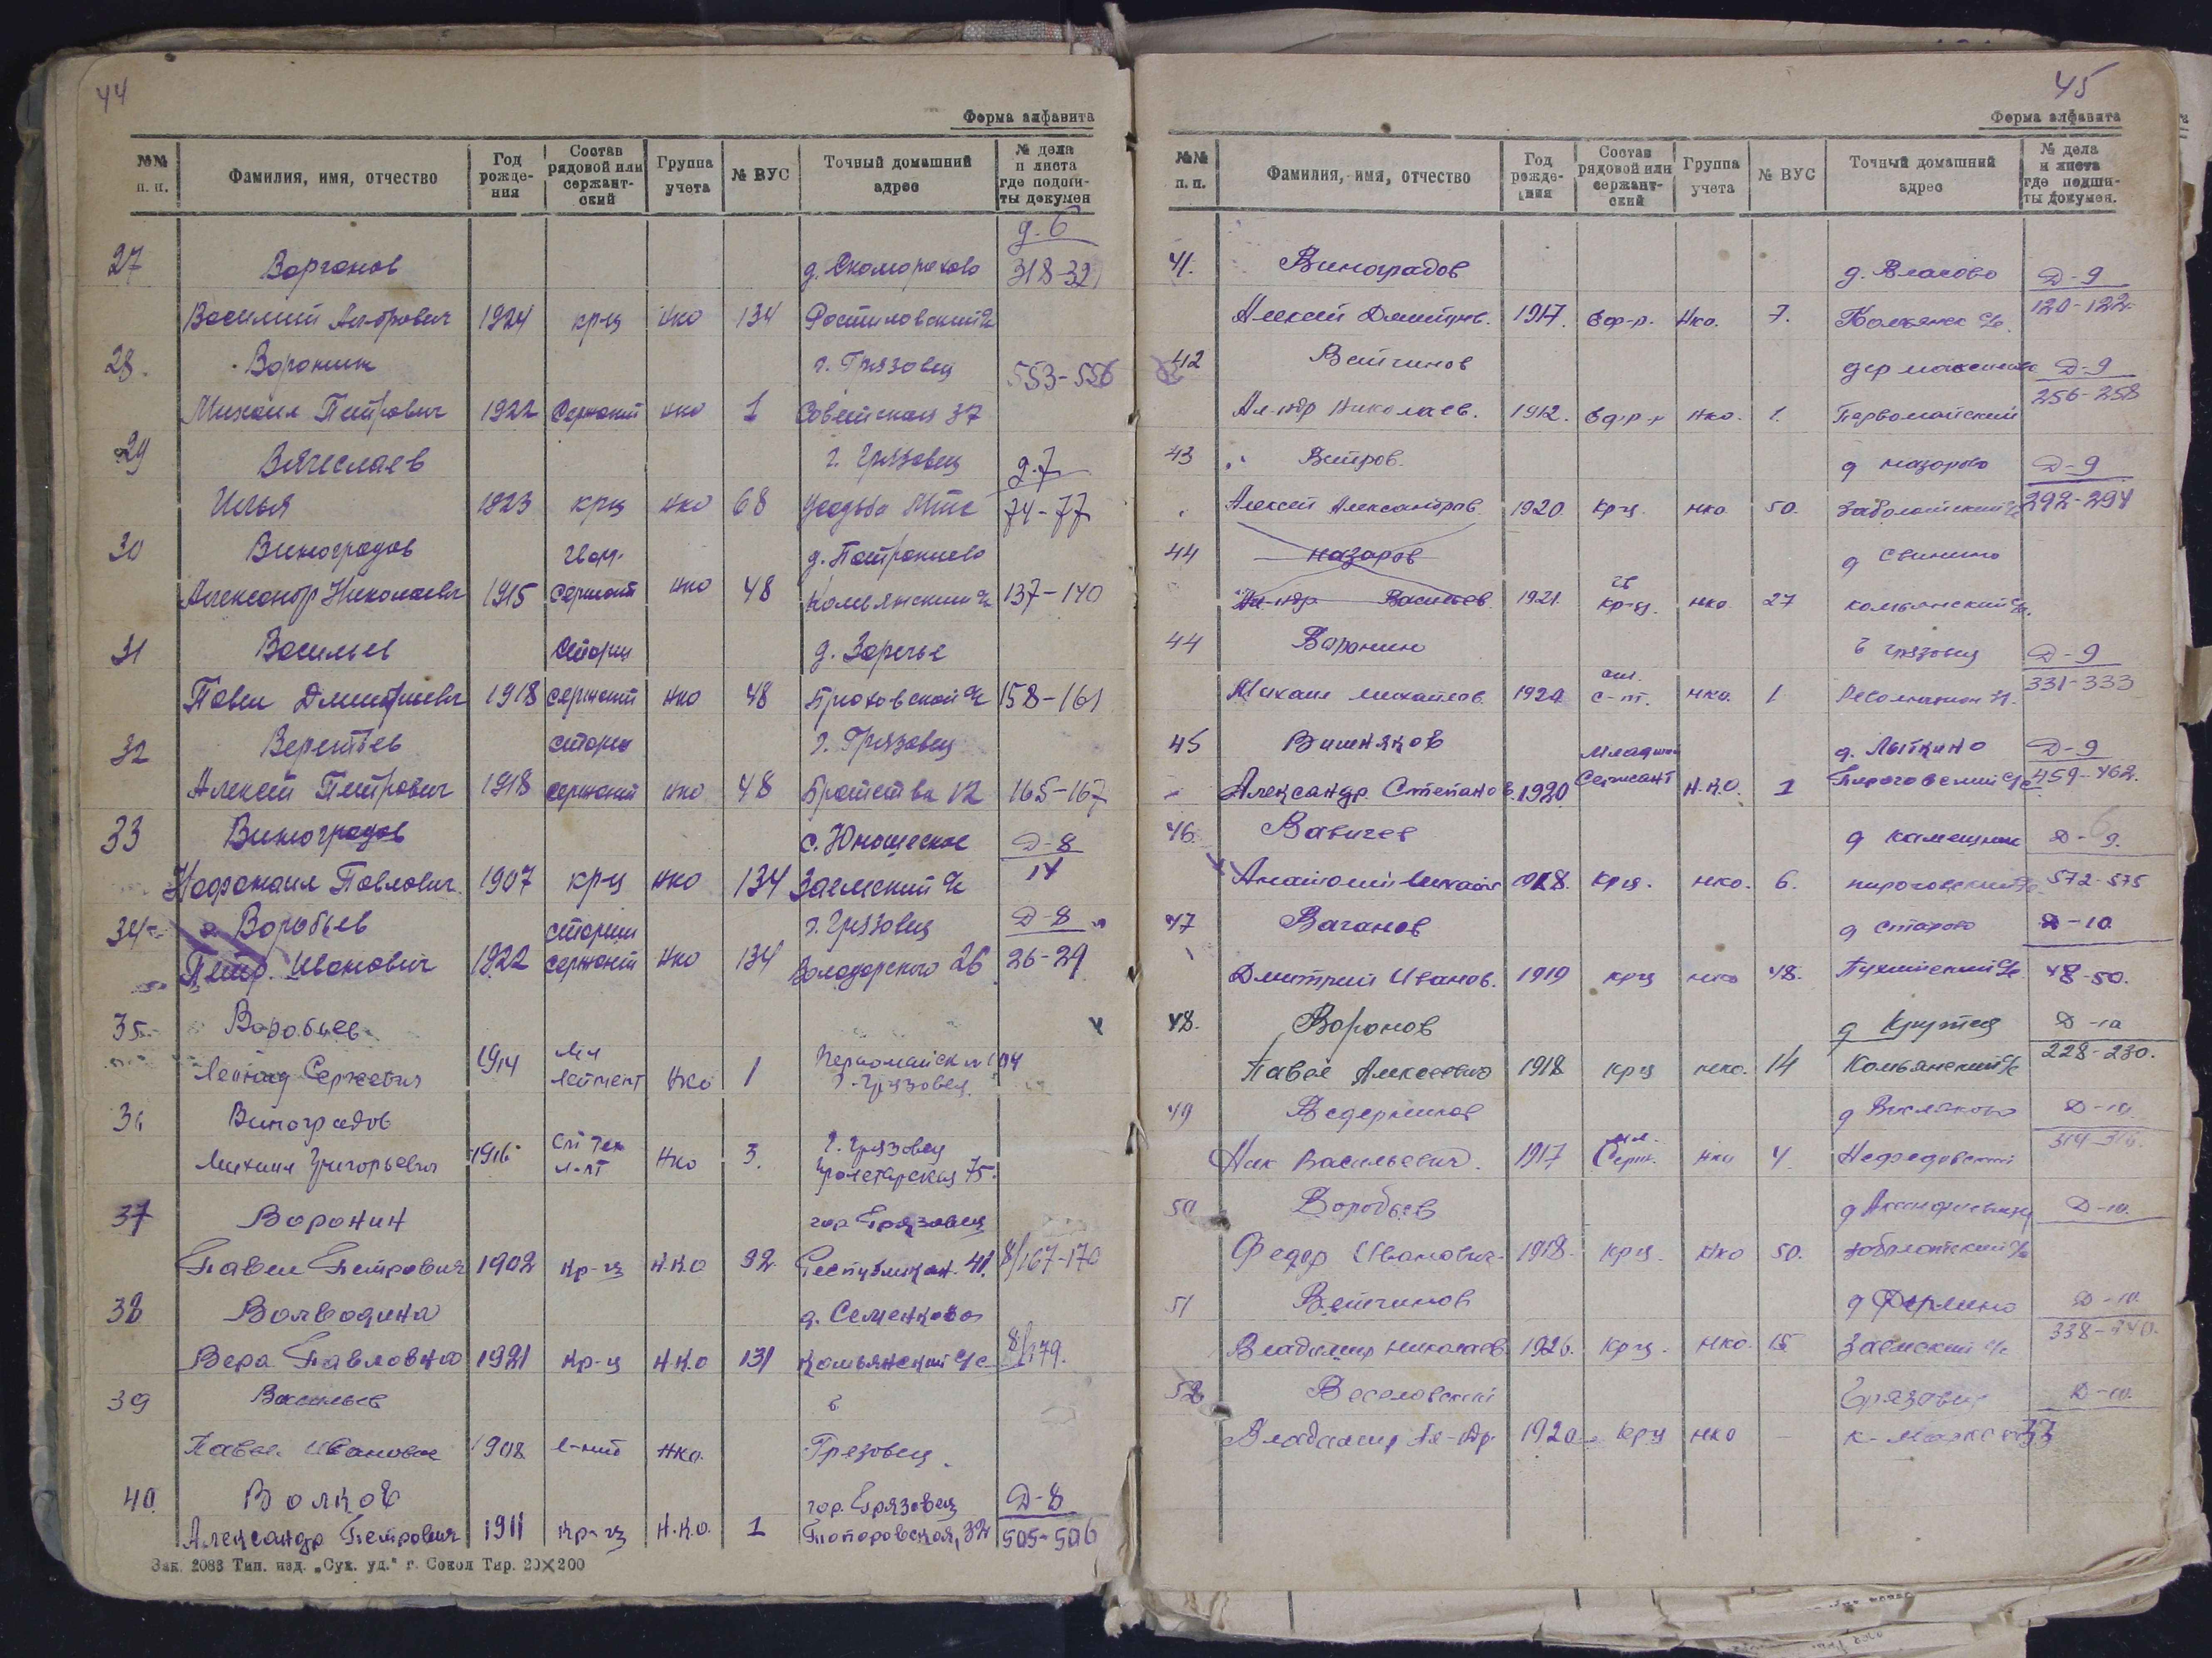 44
Форма алфавита
№№ п. п. Фамилия, имя, отчество Год рожде-ния Состав рядовой или сержант-ский Группа учета № ВУС Точный домашний адрес № дела и листа где подши-ты докумен
д. 6
27 Ворганов д. Скоморохово 318-321
Василий 1924 кр-ц нко 134 Ростиловский с/с
28. Воронин г. Грязовец 553-556
Михаил Петрович 1922 Сержант нко 1 Советская 37
29 Вячеслаев г. Грязовец д. 7
Илья 1923 крц нко 68 Усадьба 74-77
30 Виноградов гв. д.
Александр Николаевич 1915 Сержант нко 48 Комьянский с/с 137-140
31 Васильев Старш д. Заречье
Павел Дмитриевич 1918 сержант нко 48 158-161
32 г. Грязовец
Алексей Петрович 1918 сержант нко 48 Братства 12 165-167
33 Виноградов с. Юношеское Д-8
Павлович 1907 кр-ц нко 134 Заемский с/с
34 Воробьев старши г. Грязовец Д-8
Петр. Иванович 1922 сержант нко 134 Володарского 26 26-29
35 Воробьев
Леонид Сергеевич 1914 Мл Лейтент нко 1 г. Грязовец
Виноградов
Михаил Григорьевич 1916 Ст тех л-нт нко 3. г. Грязовец Пролетарская 75.
37 Воронин гор Грязовец
Павел Петрович 1902 кр-ц Н.К.О 92. Республикан. 41. 8/167-170
38 Воеводина д. Семенково
Вера Павловна 1921 кр-ц Н.К.О 131 Комьянский с/с 8/179.
39 Васильев г
Павел Иванович 1908 нко. Грязовец.
40. Волков гор. Грязовец Д-8
Александр Петрович 1911 кр-ц Н.К.О. 1 Топоровская, 32 505-506
Зак. 2083 Тип. изд. „Сух. уд.“ г. Сокол Тир. 20×200
45
Форма алфавита
№№ п. п. Фамилия, имя, отчество Год рожде-ния Состав рядовой или сержант-ский Группа учета № ВУС Точный домашний адрес № дела и листа где подши-ты докумен.
41. Виноградов д. Власово Д-9
Алексей Дмитрив. 1917. Нко. 7. Комьянск с/с. 120-122.
42 Ветчинов дер Д-9
Ал-ндр Николаев. 1912. нко. 1. Первомайский 256-258
43 Ветров. д Назорово Д-9
Алексей Александров. 1920 Крц. нко 50. Заболотский с/с 292-294
44 Назаров д Свинино
Ал-ндр Васильев. 1921. гв Кр-ц. нко. 27 Комьянский с/с.
44 Воронин г Грязовец Д-9
Михаил Михайлов. 192 с-т. нко. 1 331-333
45 Вишняков Младший д. Лыткино Д-9
Александр Степанов. 1920 Сержант Н.К.О. 1 Пироговский с/с 459-462.
46. Вавичев д Каменник Д-9.
Анатолий Михайл 1918. Крц. нко. 6. Пироговский с/с 572-575
47 Ваганов д Д-10
Дмитрий Иванов. 1919 крц нко 48. 48-50.
48. Воронов д Крутец Д-10
Павел Алексеевич 1918 крц нко. 14 Комьянский с/с 228-230.
49 Ведерников д Д-10
Ник Васильевич. 1917 мл. Серж. нко 4 Нефедовский 314-316.
50 Воробьев д Д-10.
Федор Иванович. 1918. крц. нко 50. Заболотский с/с
51 Ветчинов д Д-10
Владимир Николаев 1926. крц. нко. 15 Заемский с/с 338-340.
52 Веселовский Грязовец Д-10.
Владимир Ал-др. 1920. крц нко – К-Маркса 33